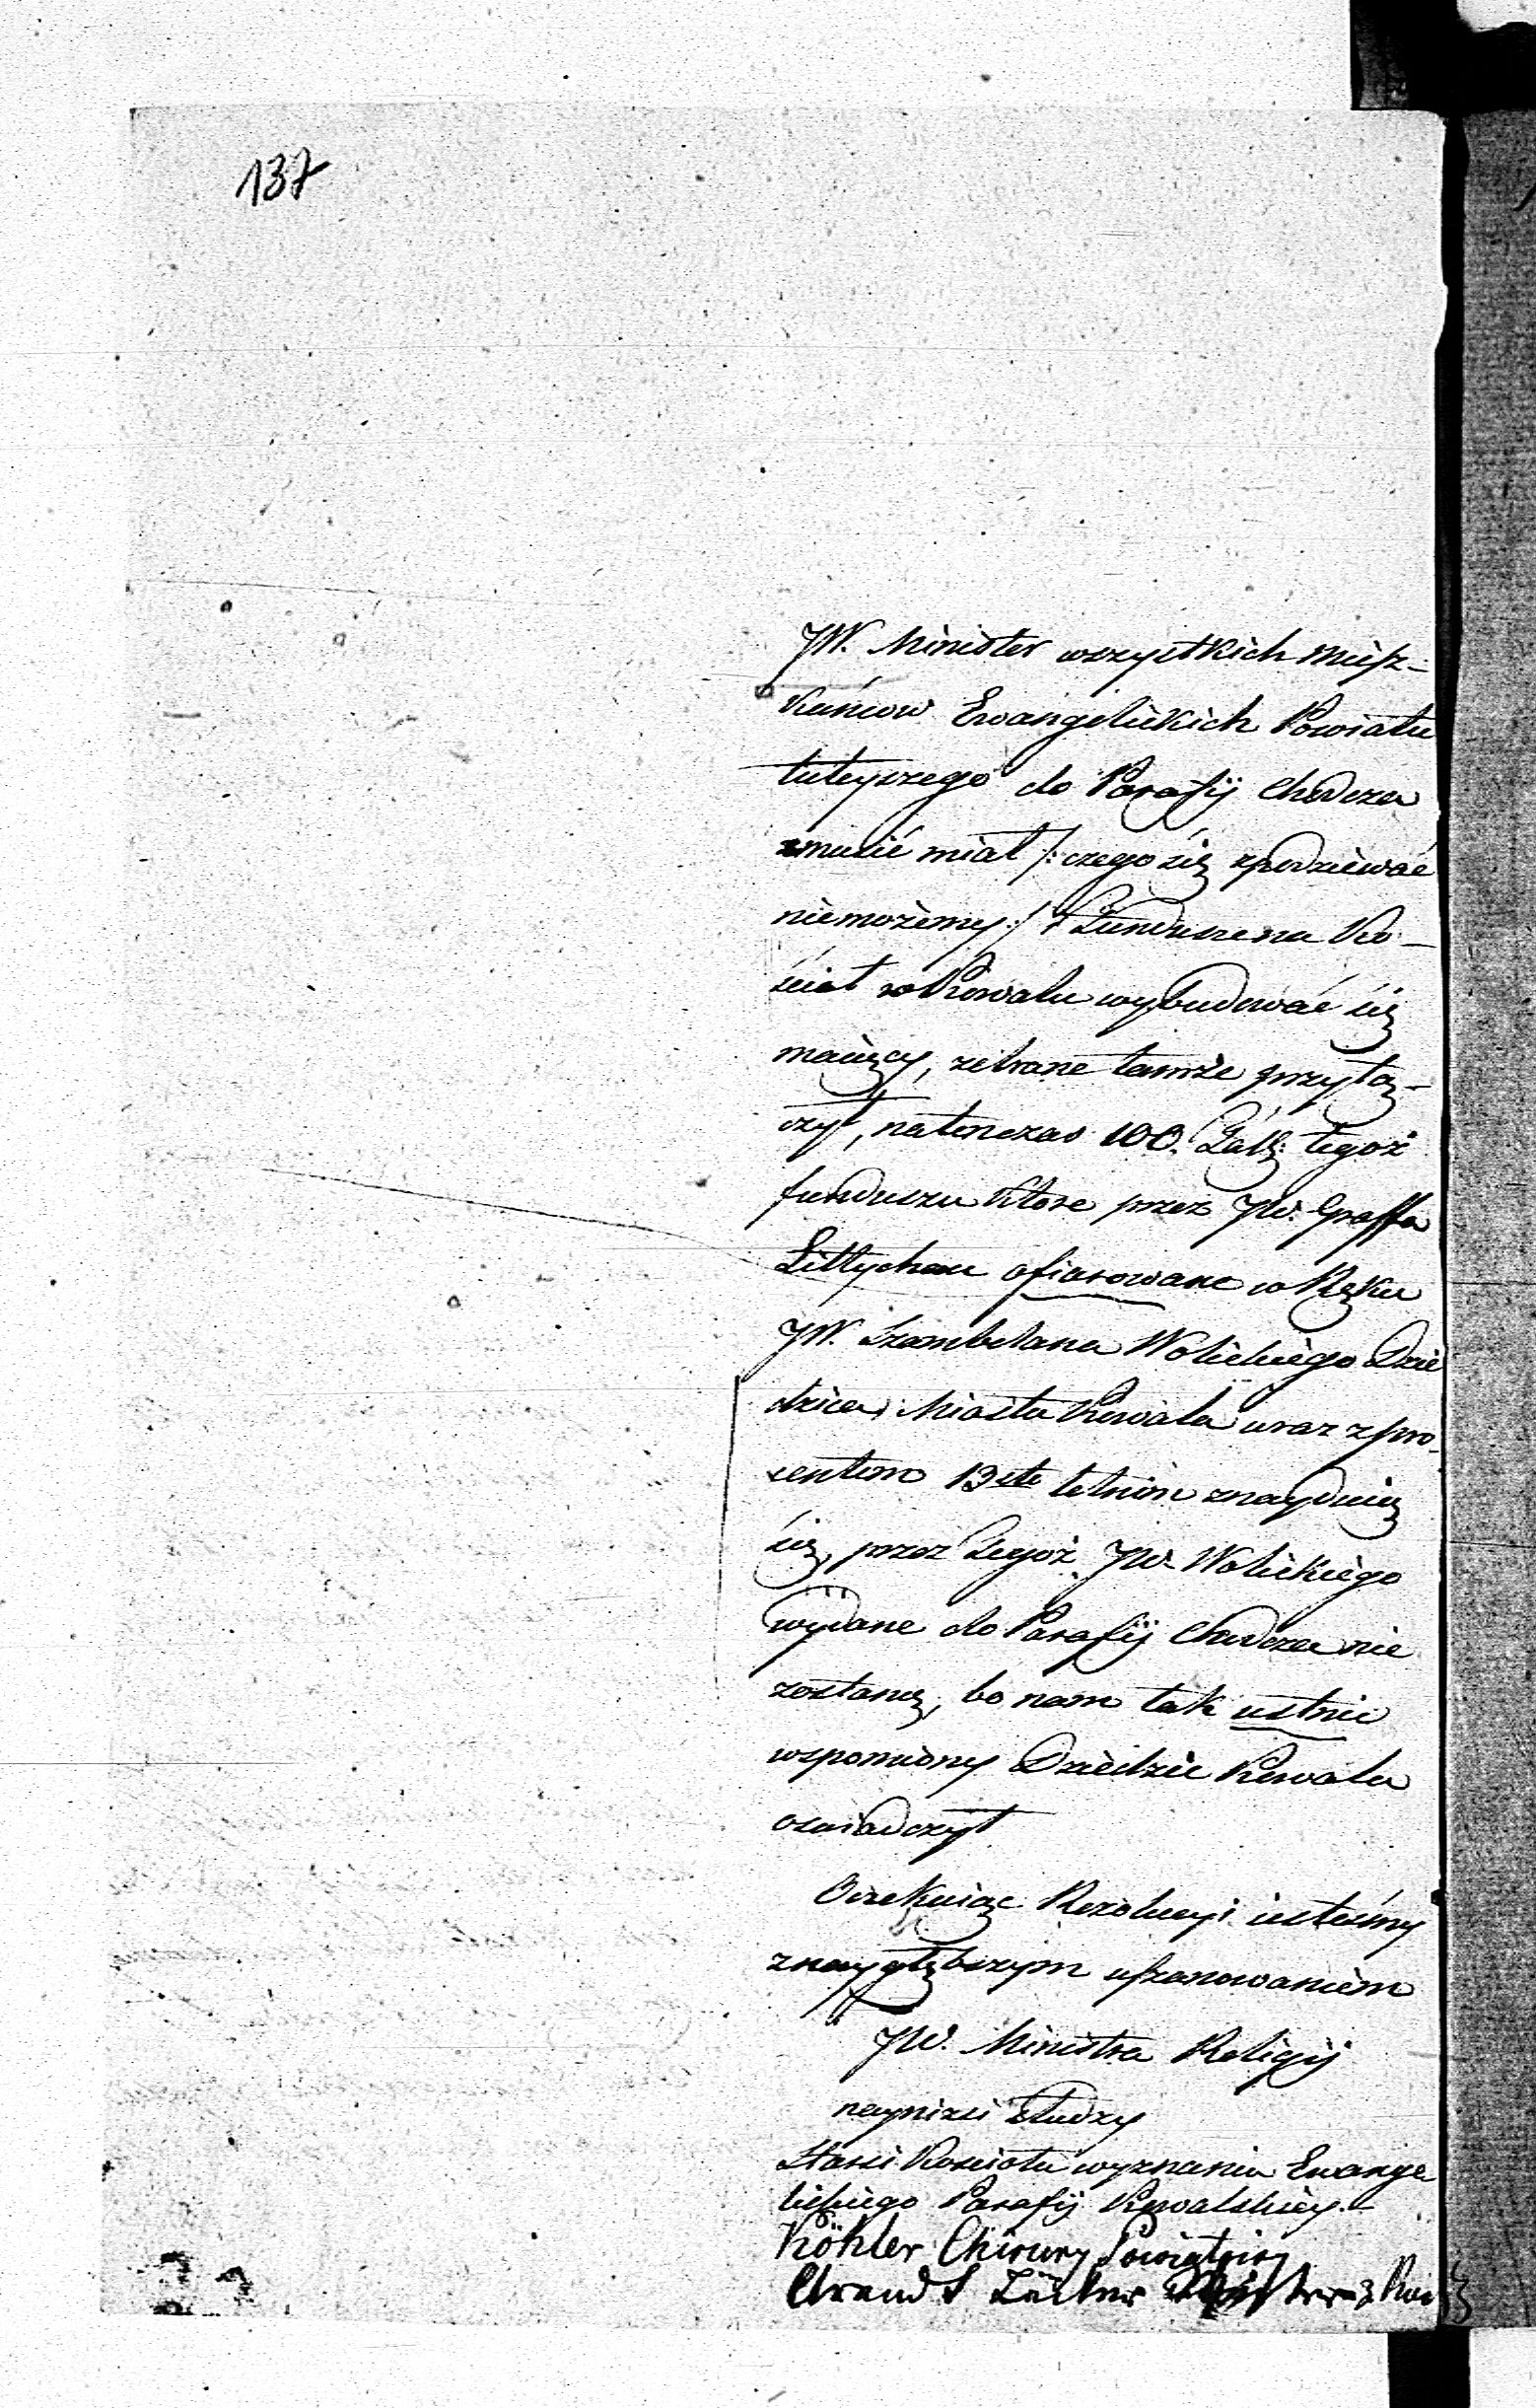 137
JW. Minister wszystkich miesz-
kańcow Ewangelickich Powiatu
tuteyszego do Parafij Chodcza
zmusić miał /: czego się spodziewać
niemożemy :/ Fundusze na Ko-
ściół w Kowalu wybudować się
maiący, zebrane tamże przyłą-
czył, natenczas 100. tegoż
funduszu ktore przez JW. Graffa
Littychau ofiarowane w Ręku
JW. Szambelana Wolickiego Dzie
dzica Miasta Kowala wraz z pro-
centem 13sto letnim znayduią
się, przez tegoż JW. Wolickiego
wydane do Parafij Chodcza nie
zostaną, bo nam tak ustnie
wspomniony Dziedzic Kowala
oswiadczył
Oczekuiąc Rezolucyi iestesmy
z naygłębszym uszanowaniem
JW. Ministra Religij
nayniżsi słudzy
Starsi Koscioła wyznania Ewange
lickiego Parafij Kowalskiey.
Köhler Chirurg Powiatowy